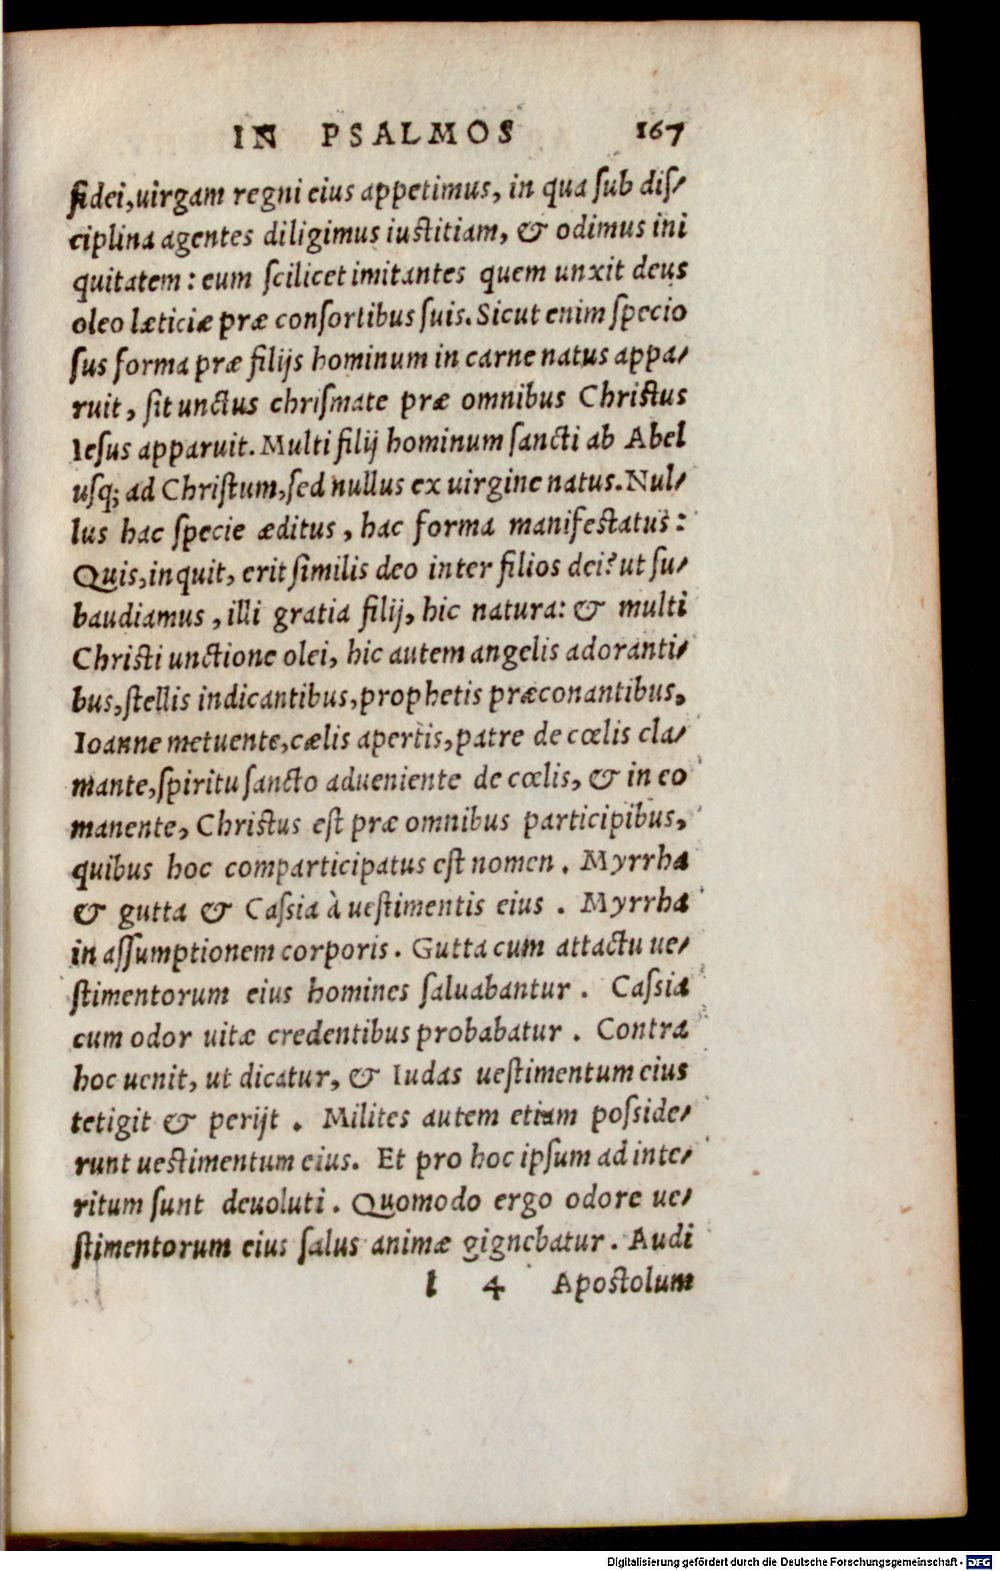 IN PSALMOS 167
fidei,uirgam regni eius appetimus, in qua ſub diſ/
ciplina agentes diligimus iuſtitiam, & odimus ini
quitatem: eum ſcilicet imitantes quem unxit deus
oleo lætitiæ præ conſortibus ſuis. Sicut enim ſpecio
ſus forma præ filijs hominum in carne natus appa/
ruit, ſit unctus chriſmate præ omnibus Chriſtus
Ieſus apparuit. Multi filij hominum ſancti ab Abel
uſq; ad Chriſtum,ſed nullus ex uirgine natus. Nul/
lus hac ſpecie æditus, hac forma manifeſtatus:
Quis,inquit, erit ſimilis deo inter filios dei? ut ſu/
baudiamus, illi gratia filij, hic natura: & multi
Chriſti unctione olei, hic autem angelis adoranti/
bus,ſtellis indicantibus,prophetis præconantibus,
Ioanne metuente,cælis apertis,patre de cœlis cla/
mante,ſpiritu ſancto adueniente de cœlis, & in eo
manente, Chriſtus eſt præ omnibus participibus,
quibus hoc comparticipatus eſt nomen. Myrrha
& gutta & Caſsia à ueſtimentis eius. Myrrha
in aſſumptionem corporis. Gutta cum attactu ue/
ſtimentorum eius homines ſaluabantur. Caſsia
cum odor uitæ credentibus probabatur. Contra
hoc uenit, ut dicatur, & Iudas ueſtimentum eius
tetigit & perijt. Milites autem etiam poſside/
runt ueſtimentum eius. Et pro hoc ipſum ad inte/
ritum ſunt deuoluti. Quomodo ergo odore ue/
ſtimentorum eius ſalus animæ gignebatur. Audi
l 4 Apoſtolum
Digitalisierung gefördert durch die Deutsche Forschungsgemeinschaft - DFG